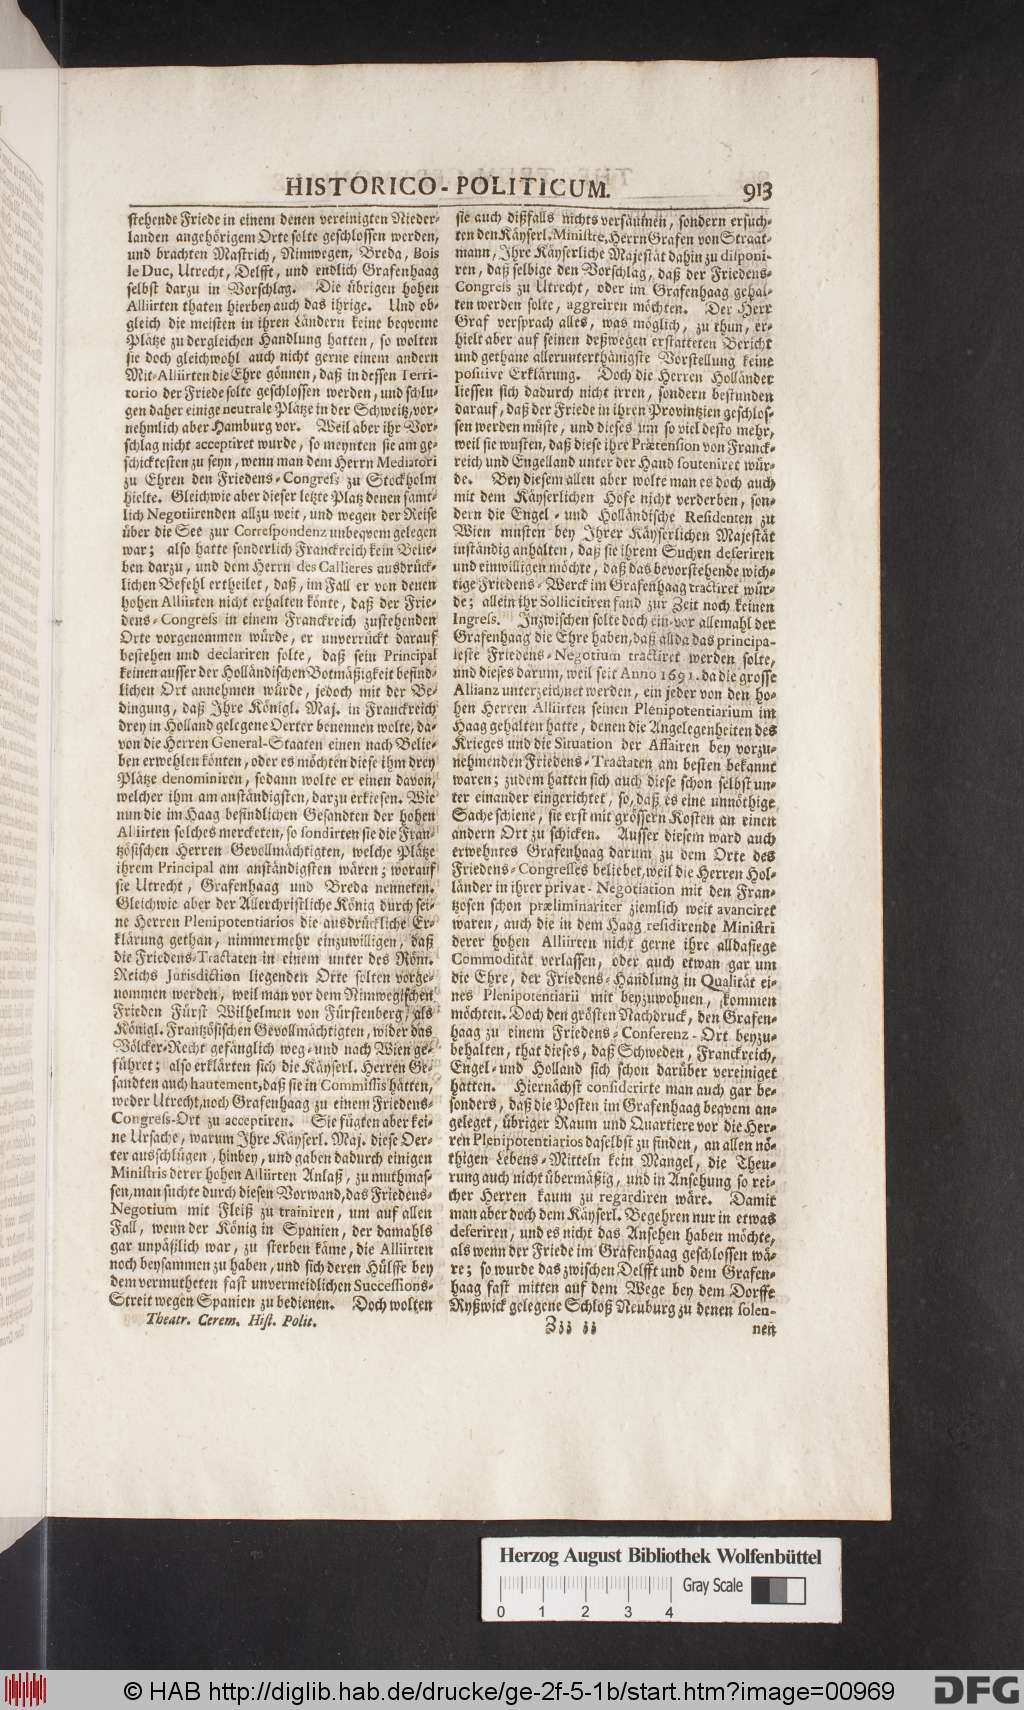 HISTORICO-POLITICUM. 913
stehende Friede in einem denen vereinigten Nieder-
landen angehörigem Orte solte geschlossen werden,
und brachten Mastrich, Nimwegen, Breda, Bois
le Duc, Utrecht, Delfft, und endlich Grafenhaag
selbst darzu in Vorschlag. Die übrigen hohen
Alliirten thaten hierbey auch das ihrige. Und ob-
gleich die meisten in ihren Ländern keine beqveme
Plätze zu dergleichen Handlung hatten, so wolten
sie doch gleichwohl auch nicht gerne einem andern
Mit-Alliirten die Ehre gönnen, daß in dessen Terri-
torio der Friede solte geschlossen werden, und schlu-
gen daher einige neutrale Plätze in der Schweitz, vor-
nehmlich aber Hamburg vor. Weil aber ihr Vor-
schlag nicht acceptiret wurde, so meynten sie am ge-
schicktesten zu seyn, wenn man dem Herrn Mediatori
zu Ehren den Friedens-Congress zu Stockholm
hielte. Gleichwie aber dieser letzte Platz denen samt-
lich Negotiirenden allzu weit, und wegen der Reise
über die See zur Correspondenz unbeqvem gelegen
war; also hatte sonderlich Franckreich kein Belie-
ben darzu, und dem Herrn des Callieres ausdrück-
lichen Befehl ertheilet, daß, im Fall er von denen
hohen Alliirten nicht erhalten könte, daß der Frie-
dens-Congress in einem Franckreich zustehenden
Orte vorgenommen würde, er unverrückt darauf
bestehen und declariren solte, daß sein Principal
keinen ausser der Holländischen Botmäßigkeit befind-
lichen Ort annehmen würde, jedoch mit der Be-
dingung, daß Ihre Königl. Maj. in Franckreich
drey in Holland gelegene Oerter benennen wolte, da-
von die Herren General-Staaten einen nach Belie-
ben erwehlen könten, oder es möchten diese ihm drey
Plätze denominiren, sodann wolte er einen davon,
welcher ihm am anständigsten, darzu erkiesen. Wie
nun die im Haag befindlichen Gesandten der hohen
Alliirten solches merckten, so sondirten sie die Fran-
tzösischen Herren Gevollmächtigten, welche Plätze
ihrem Principal am anständigsten wären; worauf
sie Utrecht, Grafenhaag und Breda nenneten.
Gleichwie aber der Allerchristliche König durch sei-
ne Herren Plenipotentiarios die ausdrückliche Er-
klärung gethan, nimmermehr einzuwilligen, daß
die Friedens-Tractaten in einem unter des Röm.
Reichs Jurisdiction liegenden Orte solten vorge-
nommen werden, weil man vor dem Nimwegischen
Frieden Fürst Wilhelmen von Fürstenberg, als
Königl. Frantzösischen Gevollmächtigten, wider das
Völcker-Recht gefänglich weg- und nach Wien ge-
führet; also erklärten sich die Käyserl. Herren Ge-
sandten auch hautement, daß sie in Commissis hätten,
weder Utrecht, noch Grafenhaag zu einem Friedens-
Congress-Ort zu acceptiren. Sie fügten aber kei-
ne Ursache, warum Ihre Käyserl. Maj. diese Oer-
ter ausschlügen, hinbey, und gaben dadurch einigen
Ministris derer hohen Alliirten Anlaß, zu muthmas-
sen, man suchte durch diesen Vorwand, das Friedens-
Negotium mit Fleiß zu trainiren, um auf allen
Fall, wenn der König in Spanien, der damahls
gar unpäßlich war, zu sterben käme, die Alliirten
noch beysammen zu haben, und sich deren Hülffe bey
dem vermutheten fast unvermeidlichen Successions-
Streit wegen Spanien zu bedienen. Doch wolten
Theatr. Cerem. Hist. Polit.
sie auch dißfalls nichts versäumen, sondern ersuch-
ten den Käyserl. Ministre, Herrn Grafen von Straat-
mann, Ihre Käyserliche Majestät dahin zu disponi-
ren, daß selbige den Vorschlag, daß der Friedens-
Congress zu Utrecht, oder im Grafenhaag gehal-
ten werden solte, aggreiren möchten. Der Herr
Graf versprach alles, was möglich, zu thun, er-
hielt aber auf seinen deßwegen erstatteten Bericht
und gethane allerunterthänigste Vorstellung keine
positive Erklärung. Doch die Herren Holländer
liessen sich dadurch nicht irren, sondern bestunden
darauf, daß der Friede in ihren Provintzien geschlos-
sen werden müste, und dieses um so viel desto mehr,
weil sie wusten, daß diese ihre Prætension von Franck-
reich und Engelland unter der Hand souteniret wür-
de. Bey diesem allen aber wolte man es doch auch
mit dem Käyserlichen Hofe nicht verderben, son-
dern die Engel- und Holländische Residenten zu
Wien musten bey Ihrer Käyserlichen Majestät
inständig anhalten, daß sie ihrem Suchen deferiren
und einwilligen möchte, daß das bevorstehende wich-
tige Friedens-Werck im Grafenhaag tractiret wür-
de; allein ihr Sollicitiren fand zur Zeit noch keinen
Ingress. Inzwischen solte doch ein-vor allemahl der
Grafenhaag die Ehre haben, daß allda das principa-
leste Friedens-Negotium tractiret werden solte,
und dieses darum, weil seit Anno 1691. da die grosse
Allianz unterzeichnet werden, ein jeder von den ho-
hen Herren Alliirten seinen Plenipotentiarium im
Haag gehalten hatte, denen die Angelegenheiten des
Krieges und die Situation der Affairen bey vorzu-
nehmenden Friedens-Tractaten am besten bekannt
waren; zudem hatten sich auch diese schon selbst un-
ter einander eingerichtet, so, daß es eine unnöthige
Sache schiene, sie erst mit grössern Kosten an einen
andern Ort zu schicken. Ausser diesem ward auch
erwehntes Grafenhaag darum zu dem Orte des
Friedens-Congresses beliebet, weil die Herren Hol-
länder in ihrer privat-Negotiation mit den Fran-
tzosen schon præliminariter ziemlich weit avanciret
waren, auch die in dem Haag residirende Ministri
derer hohen Alliirten nicht gerne ihre alldasiege
Commodität verlassen, oder auch etwan gar um
die Ehre, der Friedens-Handlung in Qualität ei-
nes Plenipotentiarii mit beyzuwohnen, kommen
möchten. Doch den grösten Nachdruck, den Grafen-
haag zu einem Friedens-Conferenz-Ort beyzu-
behalten, that dieses, daß Schweden, Franckreich,
Engel- und Holland sich schon darüber vereiniget
hatten. Hiernächst considerirte man auch gar be-
sonders, daß die Posten im Grafenhaag beqvem an-
geleget, übriger Raum und Quartiere vor die Her-
ren Plenipotentiarios daselbst zu finden, an allen nö-
thigen Lebens-Mitteln kein Mangel, die Theu-
rung auch nicht übermäßig, und in Ansehung so rei-
cher Herren kaum zu regardiren wäre. Damit
man aber doch dem Käyserl. Begehren nur in etwas
deferiren, und es nicht das Ansehen haben möchte,
als wenn der Friede im Grafenhaag geschlossen wä-
re; so wurde das zwischen Delfft und dem Grafen-
haag fast mitten auf dem Wege bey dem Dorffe
Ryßwick gelegene Schloß Neuburg zu denen solen-
Zzz zz nen
Herzog August Bibliothek Wolfenbüttel
Gray Scale
0 1 2 3 4
© HAB http://diglib.hab.de/drucke/ge-2f-5-1b/start.htm?image=00969
DFG